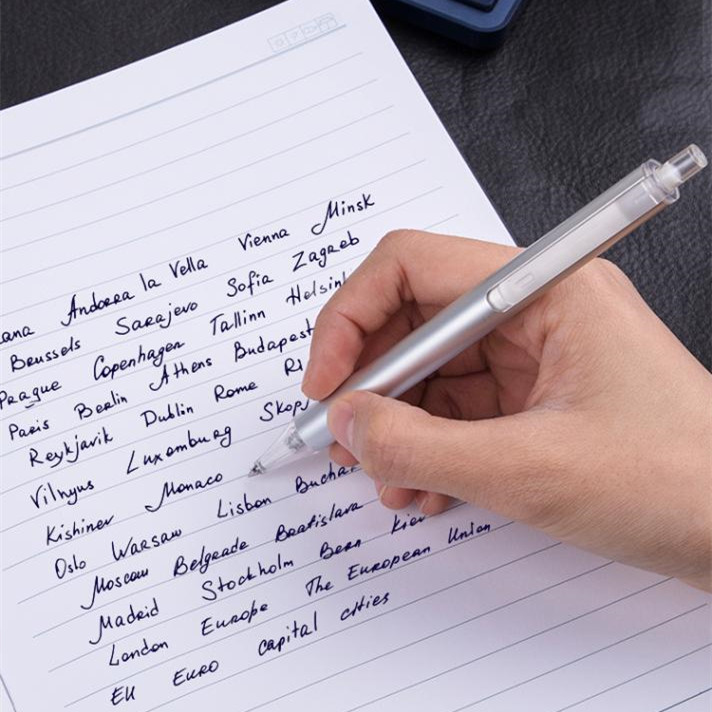 Andorra la Vella Vienna Minsk
Brussels Sarajevo Sofia Zagreb
Prague Copenhagen Tallinn Helsin
Paris Berlin Athens Budapest
Reykjavik Dublin Rome Ri
Vilnyus Luxemburg Skop
Kishinev Monaco
Oslo Warsaw Lisbon Buchar
Moscow Belgrade Bratislava
Madrid Stockholm Bern Kiev
London Europe The European Union
EU Euro capital cities